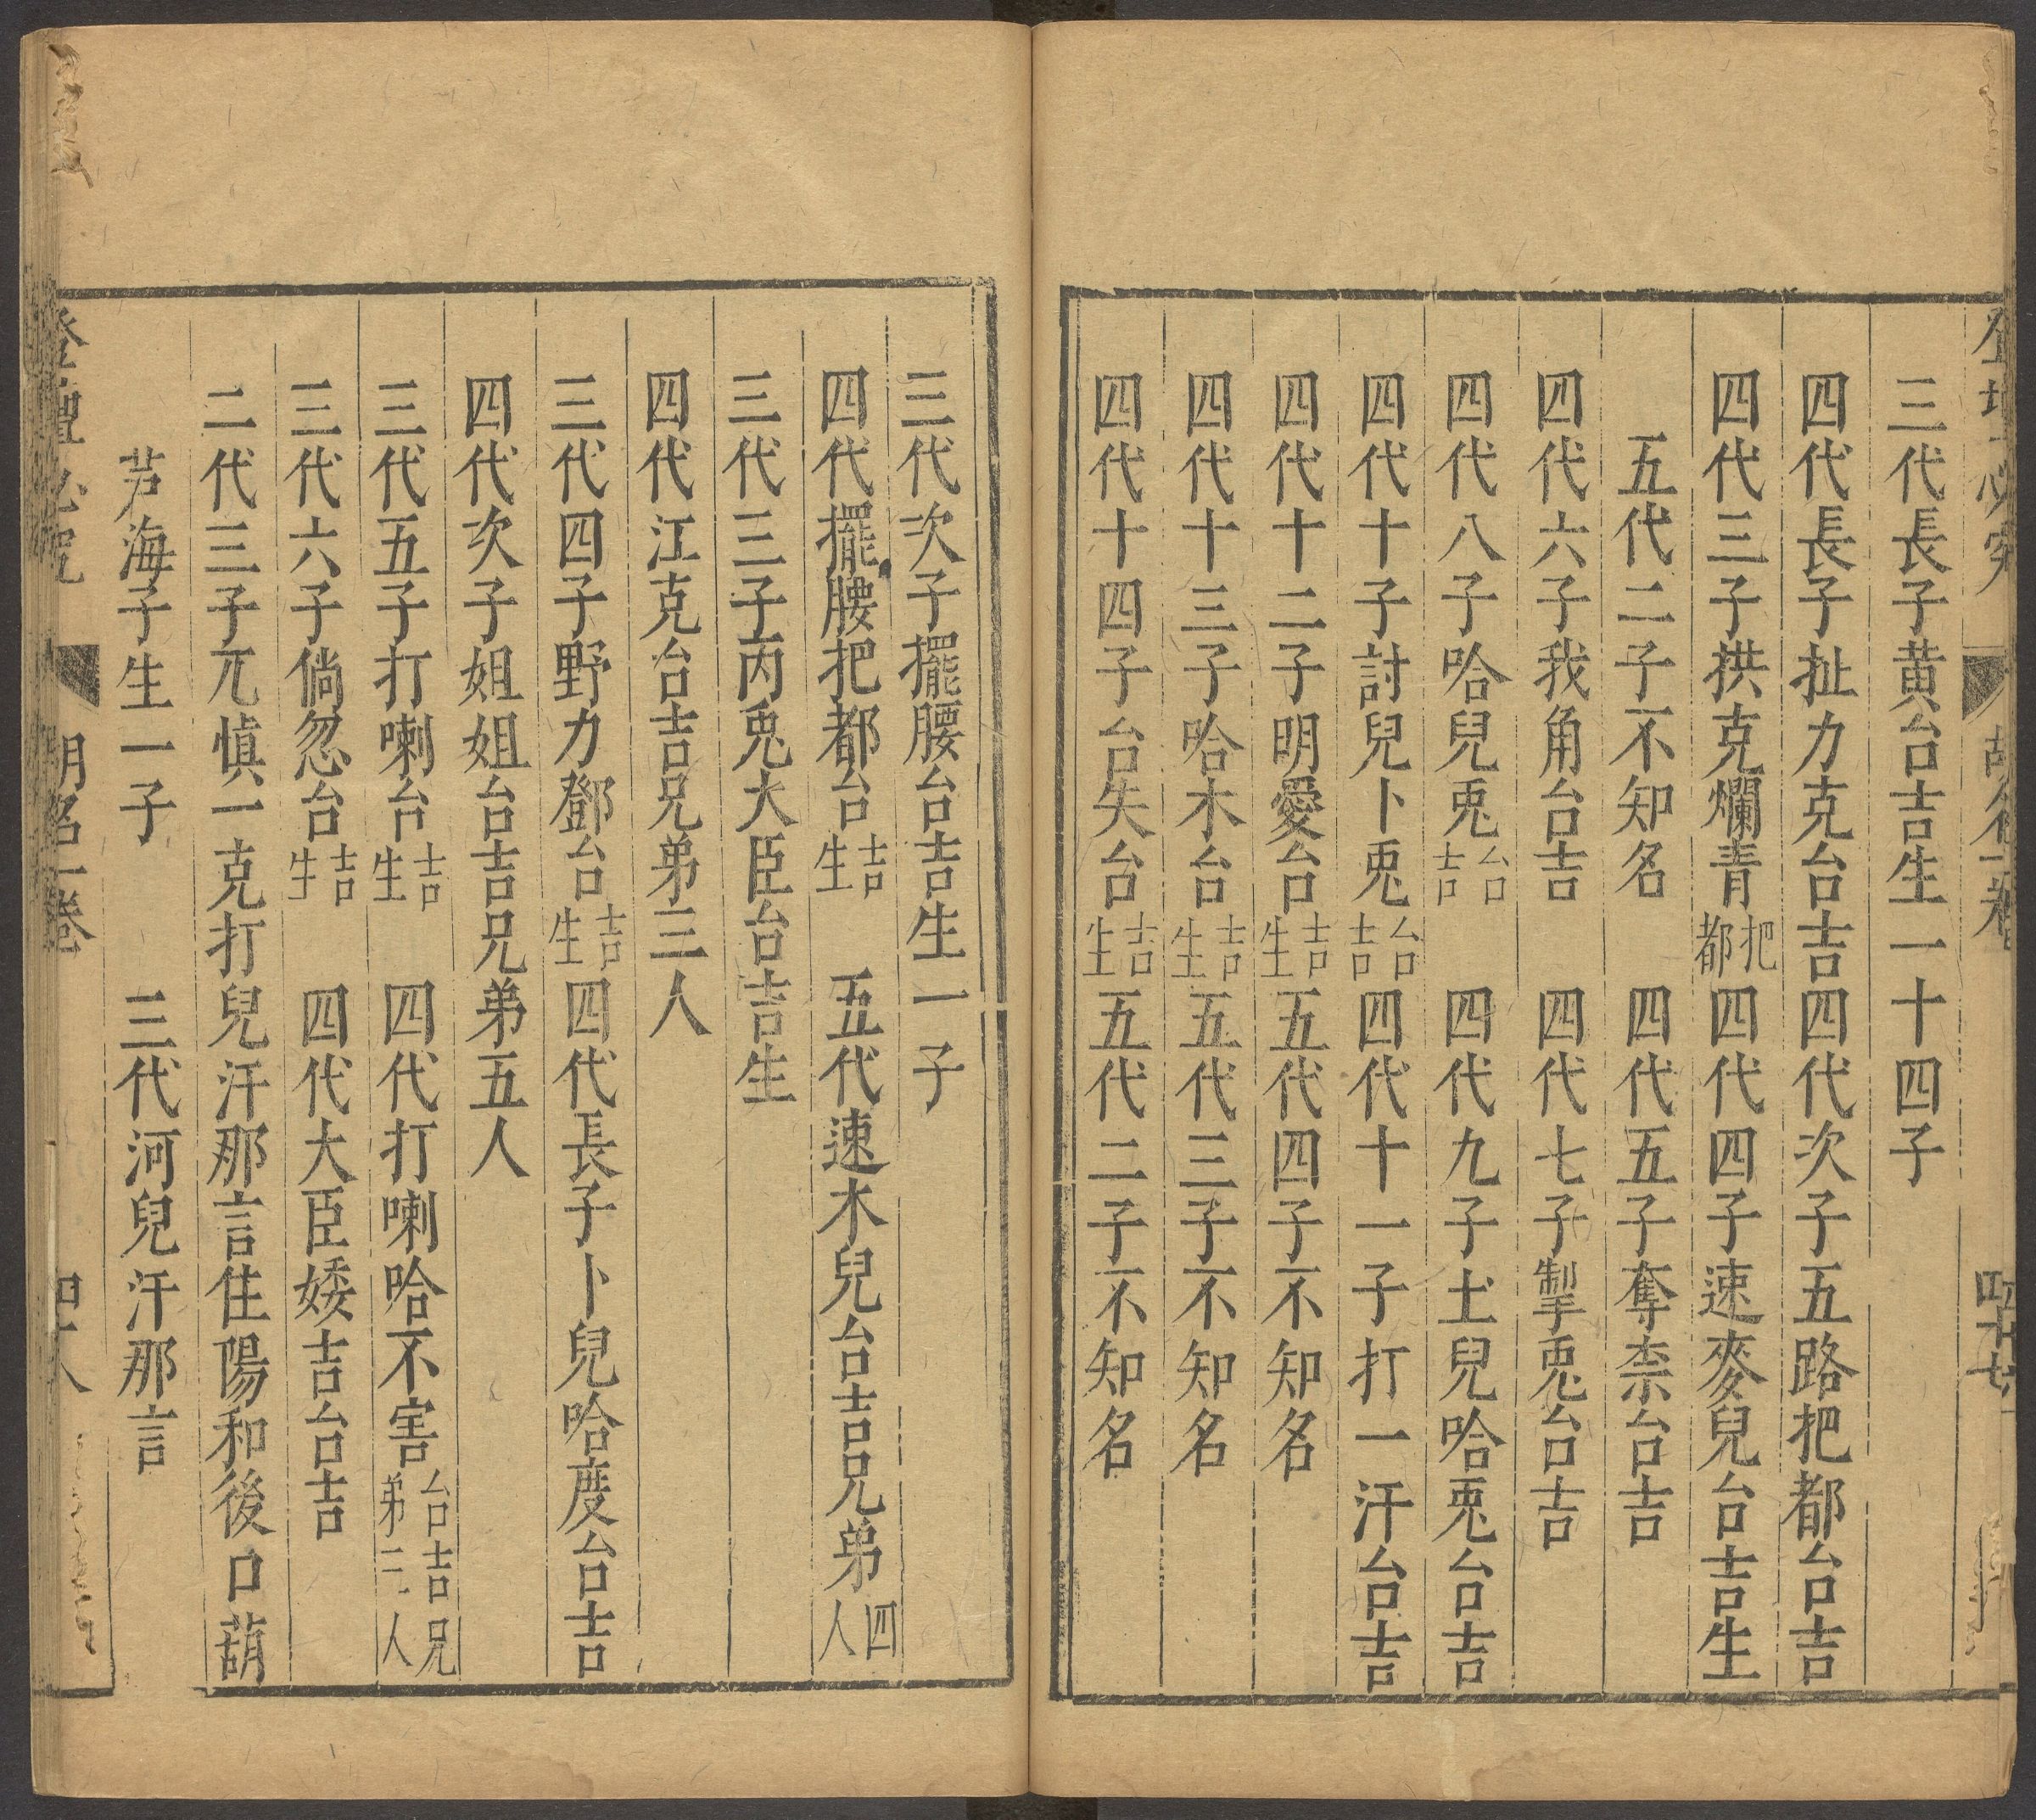 三代長子黄台吉生一十四子
四代長子扯力克台吉四代次子五路把都台吉
四代三子拱克爛青把都四代四子速麥兒台吉生
五代二子不知名　四代五子奪柰台吉
四代六子我角台吉　四代七子掣兎台吉
四代八子哈兒兎台吉　四代九子土兒哈兎台吉
四代十子討兒卜兎台吉四代十一子打一汗台吉
四代十二子明愛台吉生五代四子不知名
四代十三子哈木台吉生五代三子不知名
四代十四子台失台吉生五代二子不知名
三代次子擺腰台吉生一子
四代擺腰把都台吉生　五代速木兒台吉兄弟四人
三代三子丙兎大臣台吉生
四代江克台吉兄弟三人
三代四子野力鄧台吉生四代長子卜兒哈度台吉
四代次子姐姐台吉兄弟五人
三代五子打喇台吉生　四代打喇哈不害台吉兄弟二人
三代六子倘忽台吉生　四代大臣婑吉台吉
二代三子兀慎一克打兒汗那言住陽和後口葫
芦海子生一子　三代河兒汗那言